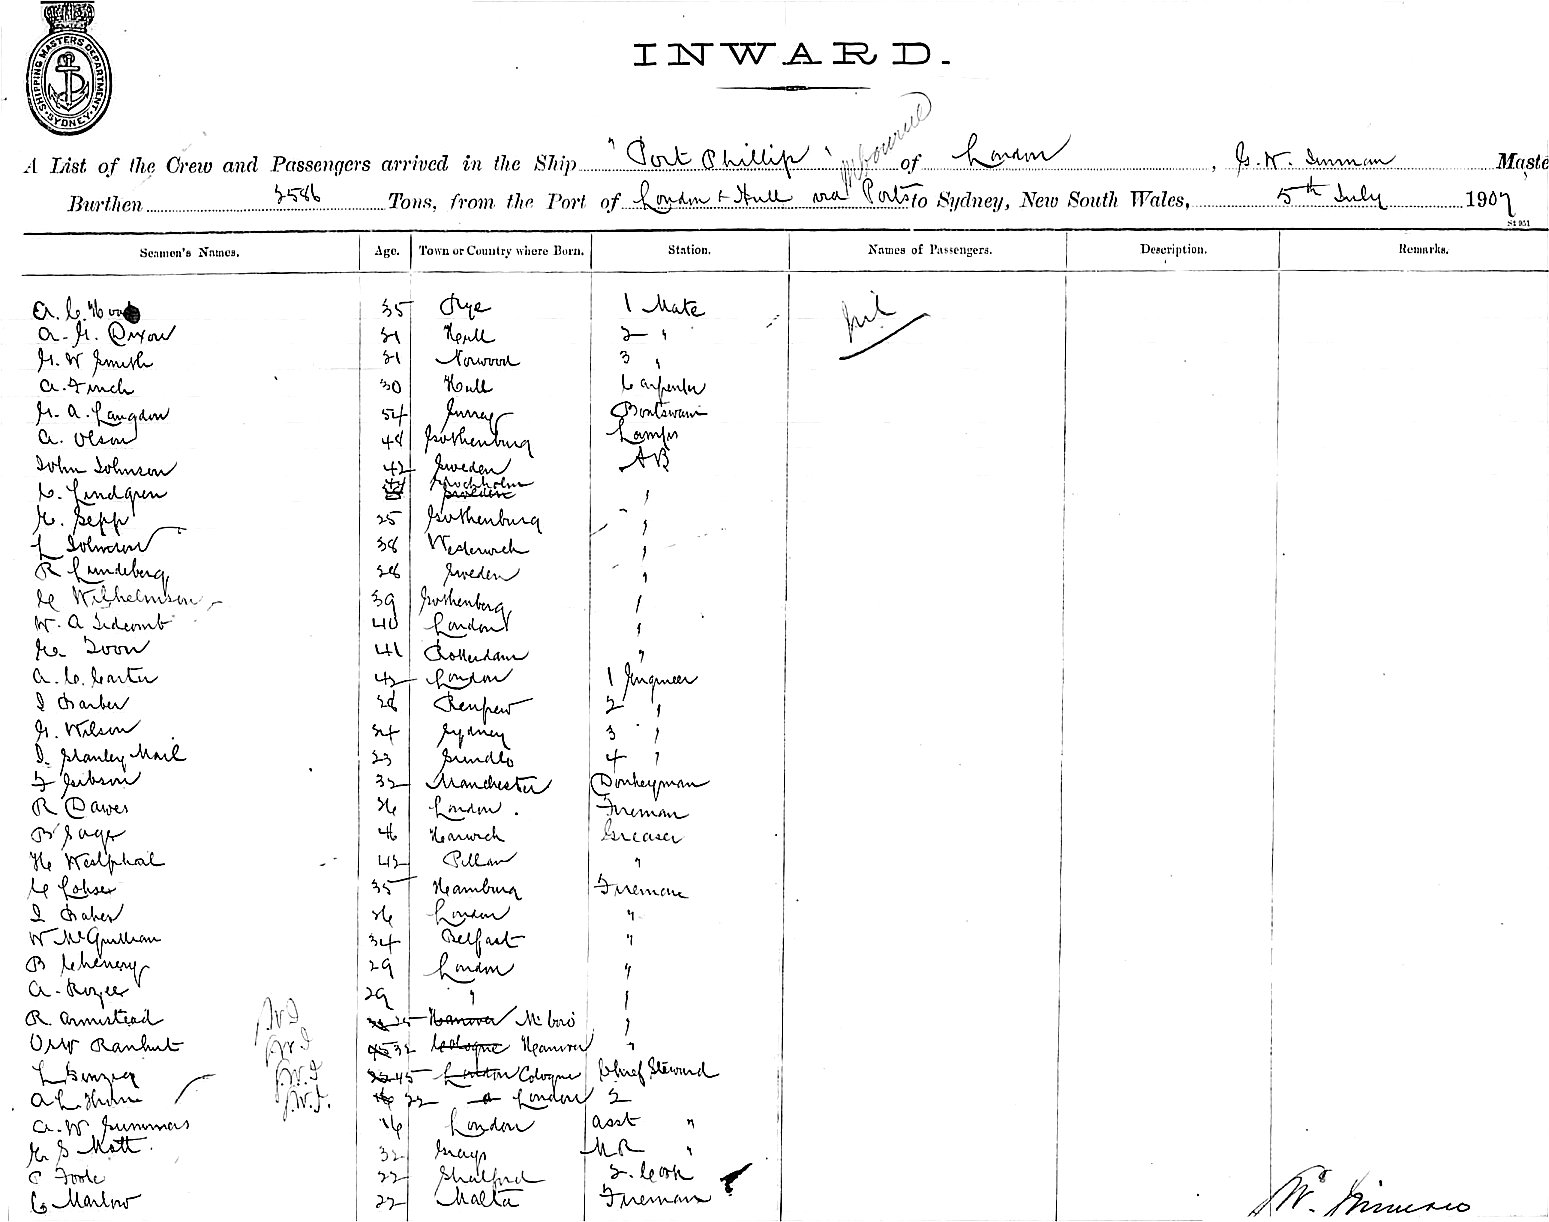 SHIPPING MASTERS DEPARTMENT SYDNEY
INWARD.
A List of the Crew and Passengers arrived in the Ship "Port Phillip" of London, G. W. Inman Maste
Burthen 2586 Tons, from the Port of London & Hull via Ports to Sydney, New South Wales, 5th July 1907
Seamen's Names. Age. Town or Country where Born. Station. Names of Passengers. Description. Remarks.
35 Rye 1 Mate Nil
A. G. Dixon 31 Hull 2 "
G. W Smith 31 Norwood 3 "
A. Finch 30 Hull Carpenter
G. A. Langdon 54 Surrey Boatswain
A. Olson 48 Gothenburg Lamps
John Johnson 42 Sweden AB
C. Lindgren Stockholm "
25 Gothenburg "
L Johnson 38 Westerwich "
R Lundeberg 28 Sweden "
Wilhelmson 39 Gothenberg "
W. A Sidcomb 40 London "
41 Rotterdam "
A. C. Carter 42 London 1 Engineer
J Barber 28 Renfrew 2 "
G. Wilson 24 Sydney 3 "
J. Stanley Mail 23 4 "
F Gibson 32 Manchester Donkeyman
R Dawes 26 London. Fireman
46 Harwich Greaser
H Westphal 42 Pillau "
35 Hamburg Fireman
J Baker 26 London "
34 Belfast "
B Chenery 29 London "
29 " "
R. Armistead 25 Hanover M'boro "
32 Cologne Hanover "
45 London Cologne Chief Steward
22 London 2
A. W Summers 16 London asst "
Mott. 32 Grays M R "
22 Shalford 2. Cook
C Marlow 22 Malta Fireman